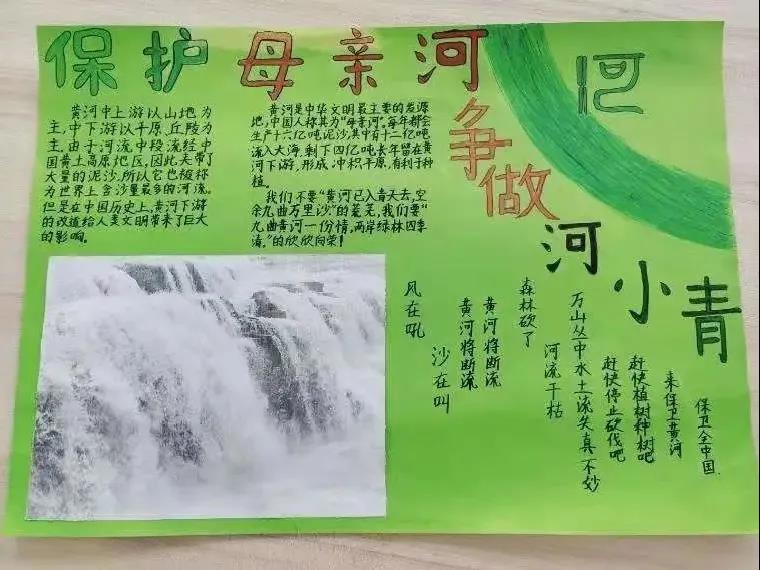 保护母亲河
争做
河小青
河
黄河中上游以山地为
主,中下游以平原、丘陵为
主。由于河流中段流经中
国黄土高原地区,因此夹带了
大量的泥沙,所以它也被称
为世界上含沙量最多的河流。
但是在中国历史上,黄河下游
的改道给人类文明带来了巨大
的影响。
黄河是中华文明最主要的发源
地,中国人称其为“母亲河”。每年都会
生产十六亿吨泥沙,其中有十二亿吨
流入大海,剩下四亿吨长年留在黄
河下游,形成冲积平原,有利于种
植。
我们不要“黄河已入青天去,空
余九曲万里沙”的荒芜,我们要“
九曲黄河一份情,两岸绿林四季
清。”的欣欣向荣!
风在吼
沙在叫
黄河将断流
黄河将断流
森林砍了
河流干枯
万山丛中水土流失真不妙
赶快停止砍伐吧
赶快植树种树吧
来保卫黄河
保卫全中国